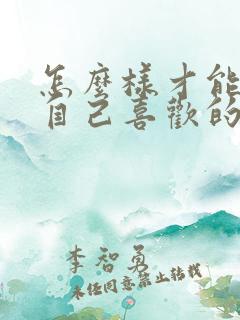 怎麼樣才能
自己喜歡的
李智勇
未任同意禁止转载